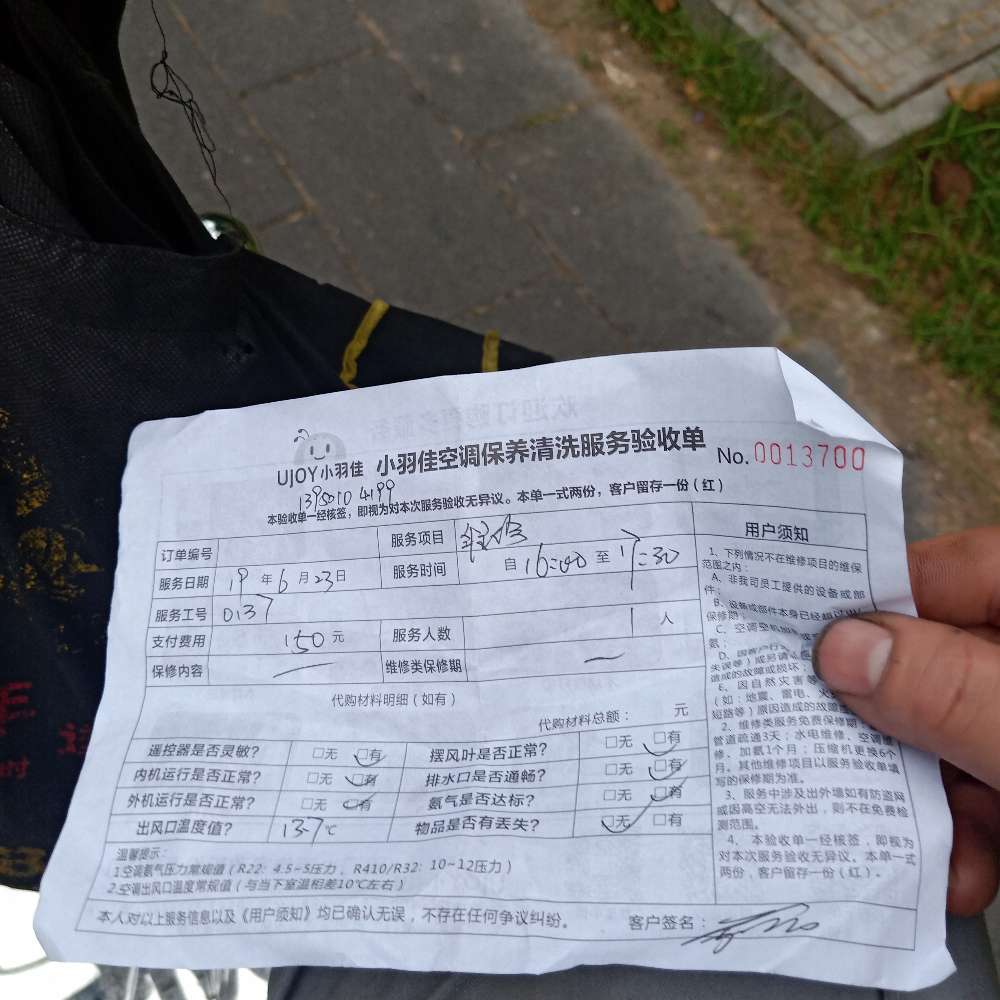 UJOY小羽佳 小羽佳空调保养清洗服务验收单 No.0013700
本验收单一经核签，即视为对本次服务验收无异议。本单一式两份，客户留存一份（红）
订单编号 服务项目
服务日期 19 年 6 月 23 日 服务时间 自 16:00 至 17:30
服务工号 0137
支付费用 150 元 服务人数 1 人
保修内容 — 维修类保修期 —
代购材料明细（如有）
代购材料总额： 元
遥控器是否灵敏？ □无 □有 摆风叶是否正常？ □无 □有
内机运行是否正常？ □无 □有 排水口是否通畅？ □无 □有
外机运行是否正常？ □无 □有 氨气是否达标？ □无 □有
出风口温度值？ 13.7 ℃ 物品是否有丢失？ □无 □有
温馨提示：
1.空调氨气压力常规值（R22：4.5~5压力，R410/R32：10~12压力
2.空调出风口温度常规值（与当下室温相差10℃左右）
本人对以上服务信息以及《用户须知》均已确认无误，不存在任何争议纠纷。 客户签名：
用户须知
1、下列情况不在维修项目的维保
范围之内：
A、非我司员工提供的设备或部
件；
B、设备或部件本身已经超
保修期；
C、空调空机
氨；
D、
失误等）或
造成的故障或损坏；
E、因自然灾害等
（如：地震、雷电、火
短路等）原因造成的故障
2、维修类服务免费保修期
管道疏通3天；水电维修、空调维
修、加氨1个月；压缩机更换6个
月。其他维修项目以服务验收单填
写的保修期为准。
3、服务中涉及出外墙如有防盗网
或因高空无法外出，则不在免费检
测范围。
4、本验收单一经核签，即视为
对本次服务验收无异议。本单一式
两份，客户留存一份（红）。